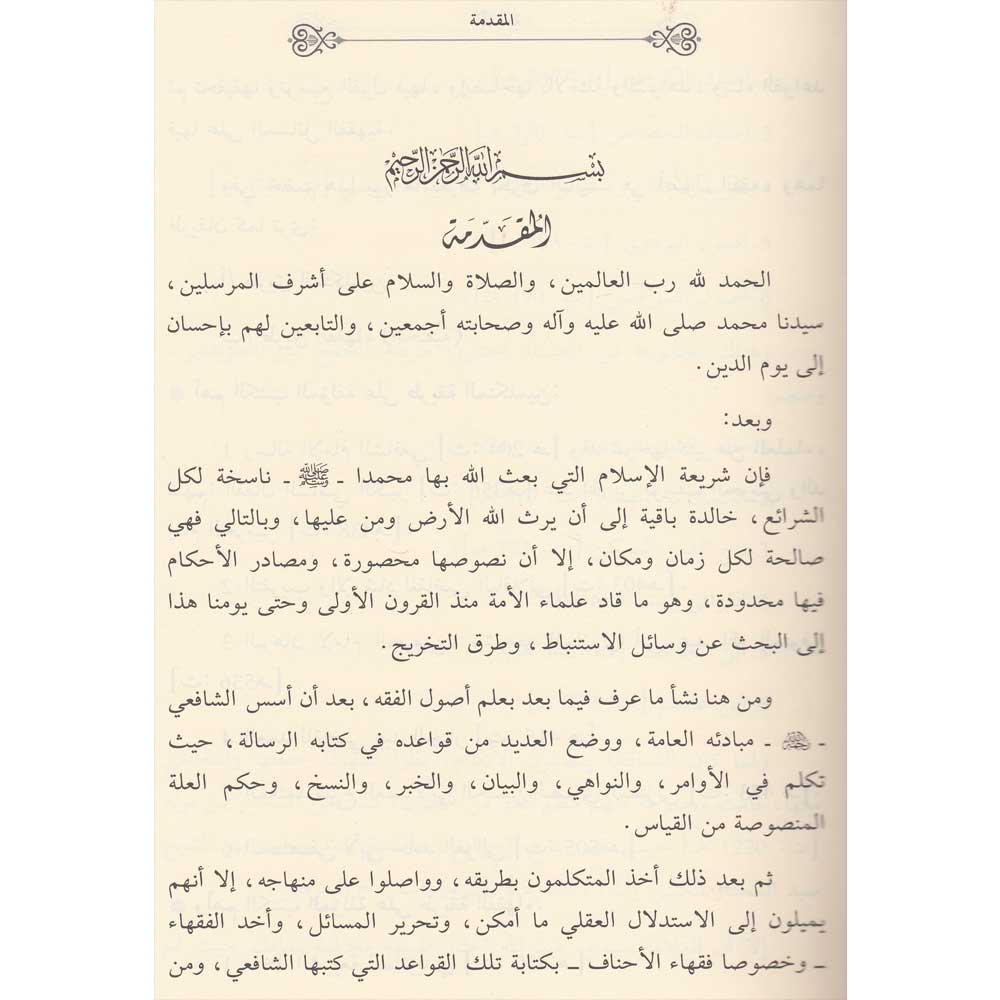 المقدمة
بسم الله الرحمن الرحيم
المقدمة
الحمد لله رب العالمين، والصلاة والسلام على أشرف المرسلين،
سيدنا محمد صلى الله عليه وآله وصحابته أجمعين، والتابعين لهم بإحسان
إلى يوم الدين.
وبعد:
فإن شريعة الإسلام التي بعث الله بها محمدا ـ ﷺ ـ ناسخة لكل
الشرائع، خالدة باقية إلى أن يرث الله الأرض ومن عليها، وبالتالي فهي
صالحة لكل زمان ومكان، إلا أن نصوصها محصورة، ومصادر الأحكام
فيها محدودة، وهو ما قاد علماء الأمة منذ القرون الأولى وحتى يومنا هذا
إلى البحث عن وسائل الاستنباط، وطرق التخريج.
ومن هنا نشأ ما عرف فيما بعد بعلم أصول الفقه، بعد أن أسس الشافعي
ـ ـ مبادئه العامة، ووضع العديد من قواعده في كتابه الرسالة، حيث
تكلم في الأوامر، والنواهي، والبيان، والخبر، والنسخ، وحكم العلة
المنصوصة من القياس.
ثم بعد ذلك أخذ المتكلمون بطريقه، وواصلوا على منهاجه، إلا أنهم
يميلون إلى الاستدلال العقلي ما أمكن، وتحرير المسائل، وأخد الفقهاء
ـ وخصوصا فقهاء الأحناف ـ بكتابة تلك القواعد التي كتبها الشافعي، ومن